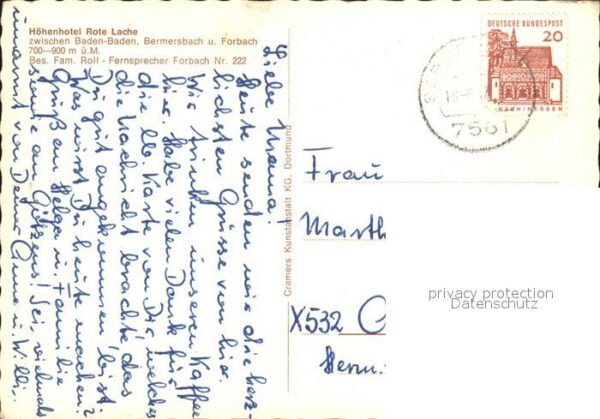 Höhenhotel Rote Lache
zwischen Baden-Baden, Bermersbach u. Forbach
700—900 m ü.M.
Bes. Fam. Roll - Fernsprecher Forbach Nr. 222
Liebe Mama!
Heute senden wir die herz-
lichsten Grüsse von hier.
Wir trinken unseren Kaffee
hier. Habe vielen Dank für
die Karte von Dir, welche
die Nachricht brachte, das
Du gut angekommen bist.
Was wirst Du heute machen?
Gruß an Helga u. Familie
sowie an Götzens! Sei vielmals
umarmt von Deiner Anne u. Willi.
Cramers Kunstanstalt KG. Dortmund
DEUTSCHE BUNDESPOST
20
LORSCH/HESSEN
7561
Frau
Marth
X532
Herm.
privacy protection
Datenschutz